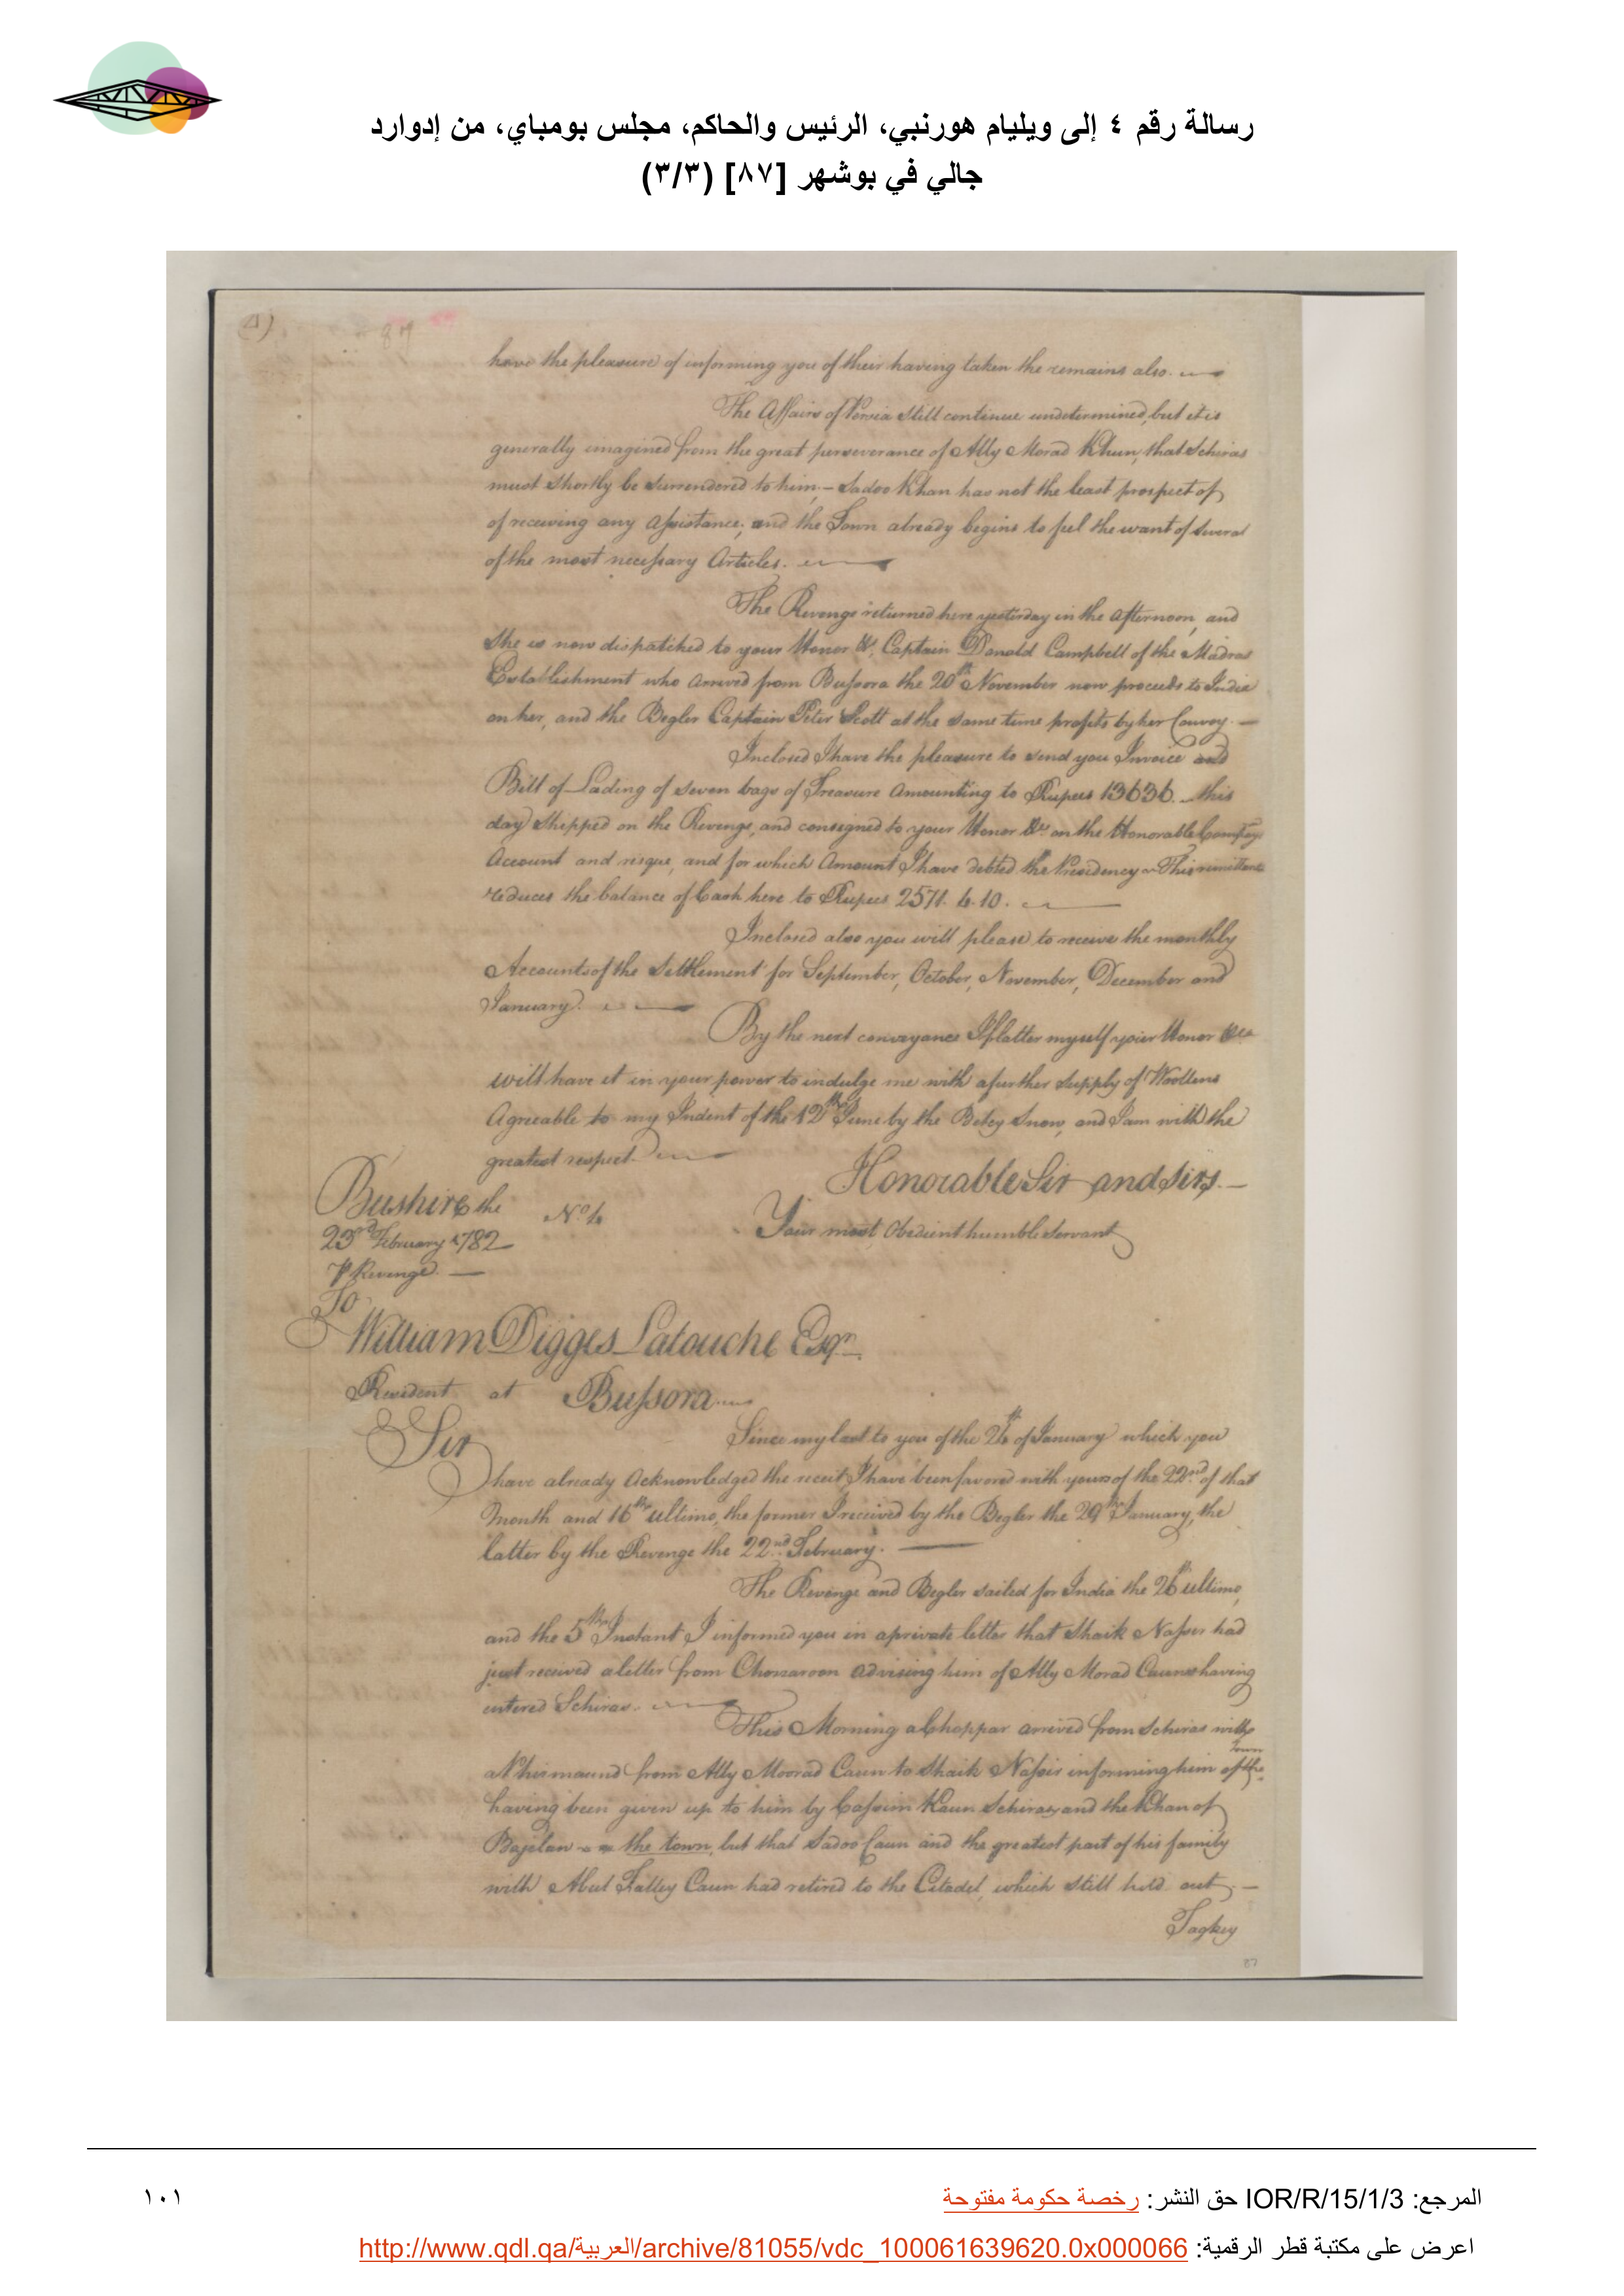 رسالة رقم ٤ إلى ويليام هورنبي، الرئيس والحاكم، مجلس بومباي، من إدوارد
جالي في بوشهر [٨٧] (٣/٣)
87
have the pleasure of informing you of their having taken the remains also.
The Affairs of Persia still continue undetermined, but it is
generally imagined from the great perseverance of Ally Morad Khun, that Schiras
must shortly be surrendered to him, – Sadoo Khan has not the least prospect of
of receiving any assistance, and the Town already begins to feel the want of several
of the most necessary Articles.
The Revenge returned here yesterday in the afternoon, and
She is now dispatched to your Honor &c, Captain Donald Campbell of the Madras
Establishment who arrived from Bussora the 20th November now proceeds to India
on her, and the Begler Captain Peter Scott at the same time profits by her Convoy. –
Inclosed I have the pleasure to send you Invoice and
Bill of Lading of seven bags of Treasure Amounting to Rupees 13636. – this
day Shipped on the Revenge, and consigned to your Honor &c on the Honorable Companys
Account and risque, and for which Amount I have debted the Presidency – This remittance
reduces the balance of Cash here to Rupees 2571. 4. 10.
Inclosed also you will please to receive the monthly
Accounts of the Settlement for September, October, November, December and
January.
By the next conveyance I flatter myself your Honor &ca
will have it in your power to indulge me with a further Supply of Woollens
Agreeable to my Indent of the 12th June by the Betsy Snow, and I am with the
greatest respect.
Honorable Sir and Sirs. –
Bushire the No. 4
Your most Obedient humble Servant
23rd February 1782
P Revenge. –
To
William Digges Latouche Esqr.
Resident at Bussora.
Sir
Since my last to you of the of January which you
have already Acknowledged the receit I have been favored with yours of the 22nd of that
Month and 16th ultimo, the former I received by the Begler the 29th January, the
latter by the Revenge the 22nd February. –
The Revenge and Begler sailed for India the 26th ultimo,
and the 5th Instant I informed you in a private letter that Shaik Nassir had
just received a letter from advising him of Ally Morad Cauns having
entered Schiras.
This Morning a Choppar arrived from Schiras with
a from Ally Moorad Caun to Shaik Nassir informing him of the Town
having been given up to him by Cassim Kaun Schirasy and the Khan of
Bajelan – the town, but that Sadoo Caun and the greatest part of his family
with Abul Fattey Caun had retired to the Citadel, which still held out –
Tagkey
87
المرجع: IOR/R/15/1/3 حق النشر: رخصة حكومة مفتوحة
١٠١
اعرض على مكتبة قطر الرقمية: http://www.qdl.qa/العربية/archive/81055/vdc_100061639620.0x000066